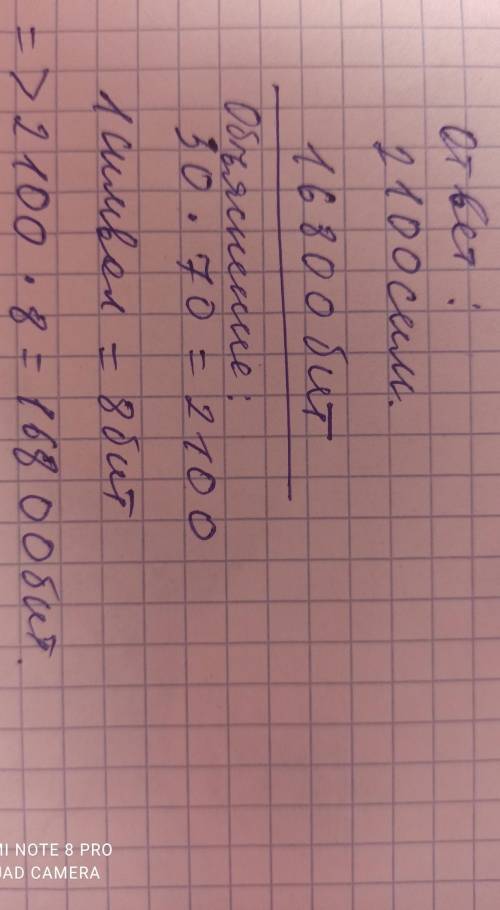 Ответ:
2100 симв.
16800 бит
Объяснение:
30 · 70 = 2100
1 символ = 8 бит
=> 2100 · 8 = 16800 бит.
MI NOTE 8 PRO
UAD CAMERA